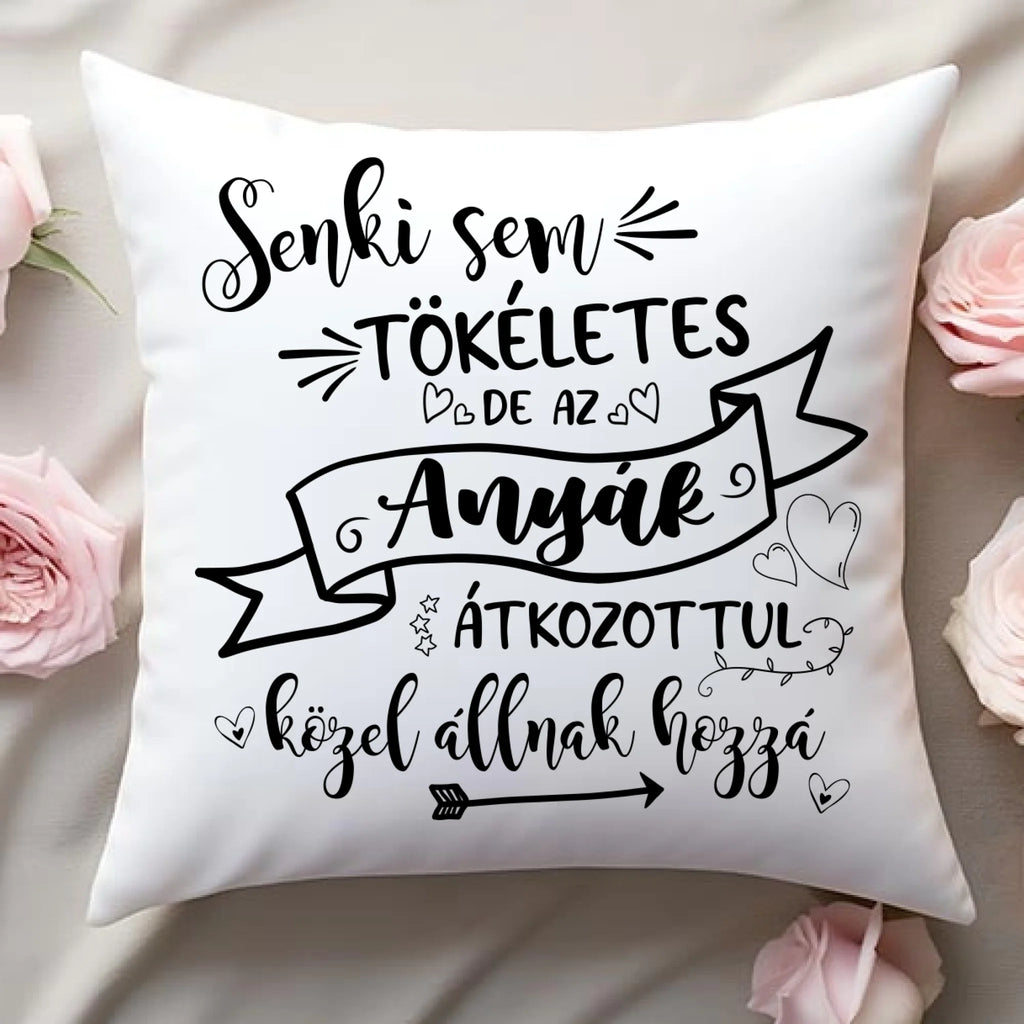 Senki sem
TÖKÉLETES
DE AZ
Anyák
ÁTKOZOTTUL
közel állnak hozzá